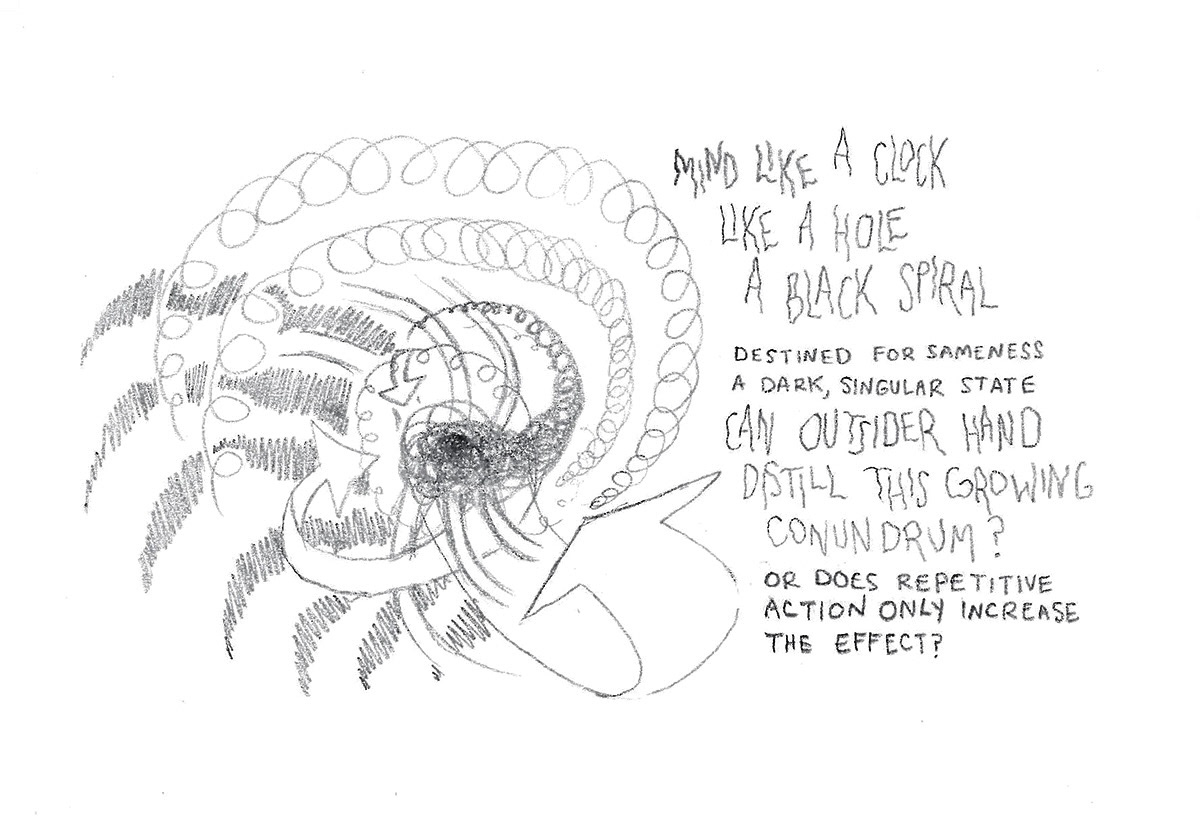 MIND LIKE A CLOCK
LIKE A HOLE
A BLACK SPIRAL
DESTINED FOR SAMENESS
A DARK, SINGULAR STATE
CAN OUTSIDER HAND
DISTILL THIS GROWING
CONUNDRUM?
OR DOES REPETITIVE
ACTION ONLY INCREASE
THE EFFECT?